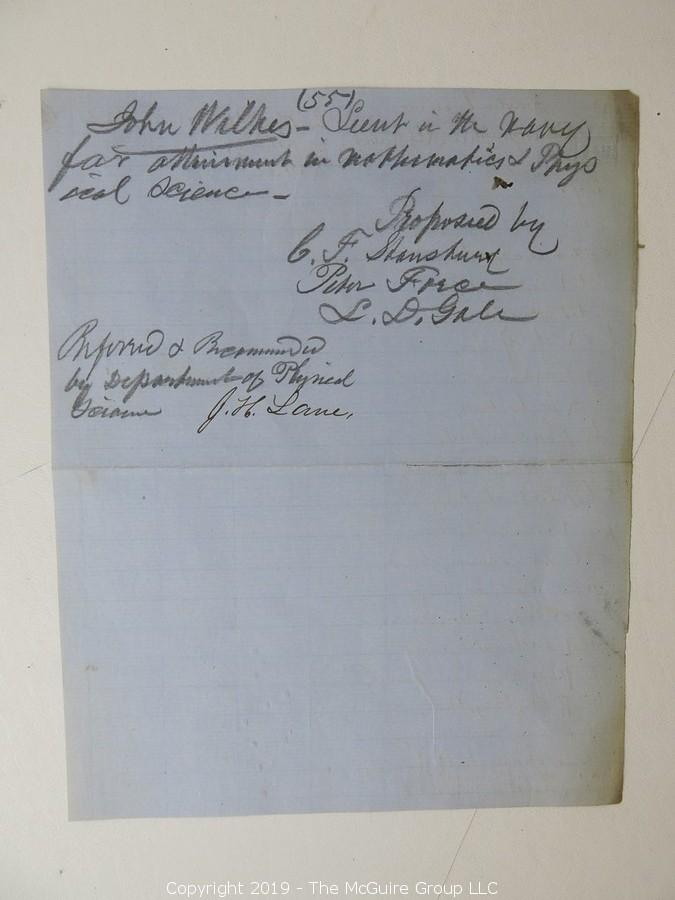 (55)
John Wilkes - Lieut in the Navy
for attainment in mathematics & Phys
ical Science -
Proposed by
C. F. Stansbury
Peter Force
L. D. Gale
Referred & Recommended
by Department of Physical
Science J. H. Lane,
Copyright 2019 - The McGuire Group LLC